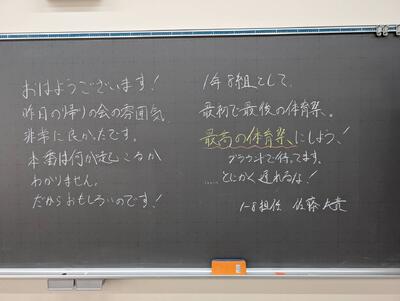 おはようございます!
昨日の帰りの会の雰囲気、
非常に良かったです。
本番は何が起こるか
わかりません。
だからおもしろいのです!
1年8組として、
最初で最後の体育祭。
最高の体育祭にしよう!
グラウンドで待ってます。
……とにかく遅れるな!
1-8組担任 佐藤